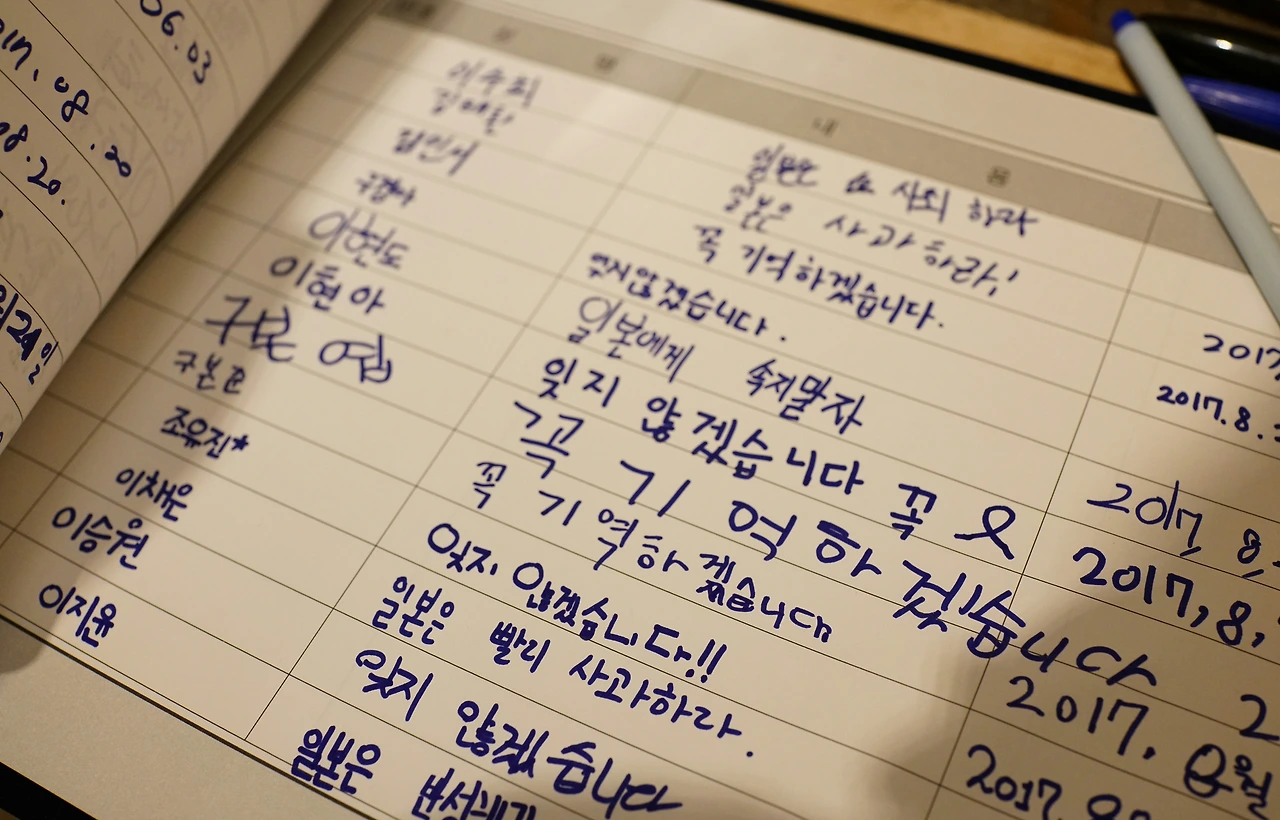 06.03
2017.08.20
08.20.
내 용
이수희 일본은 사죄하라
김예린 일본은 사과하라!
김민서 꼭 기억하겠습니다. 2017
잊지않겠습니다. 2017.8.
이현도 일본에게 속지말자
이현아 잊지 않겠습니다 꼭 2017, 8,
구본엽 꼭 기억하겠습니다 2017, 8,
구본표 꼭 기억하겠습니다
조유진* 잊지 않겠습니다!! 2017. 8월
이채은 일본은 빨리 사과하라. 2017.
이승원 잊지 않겠습니다
이지윤 일본은